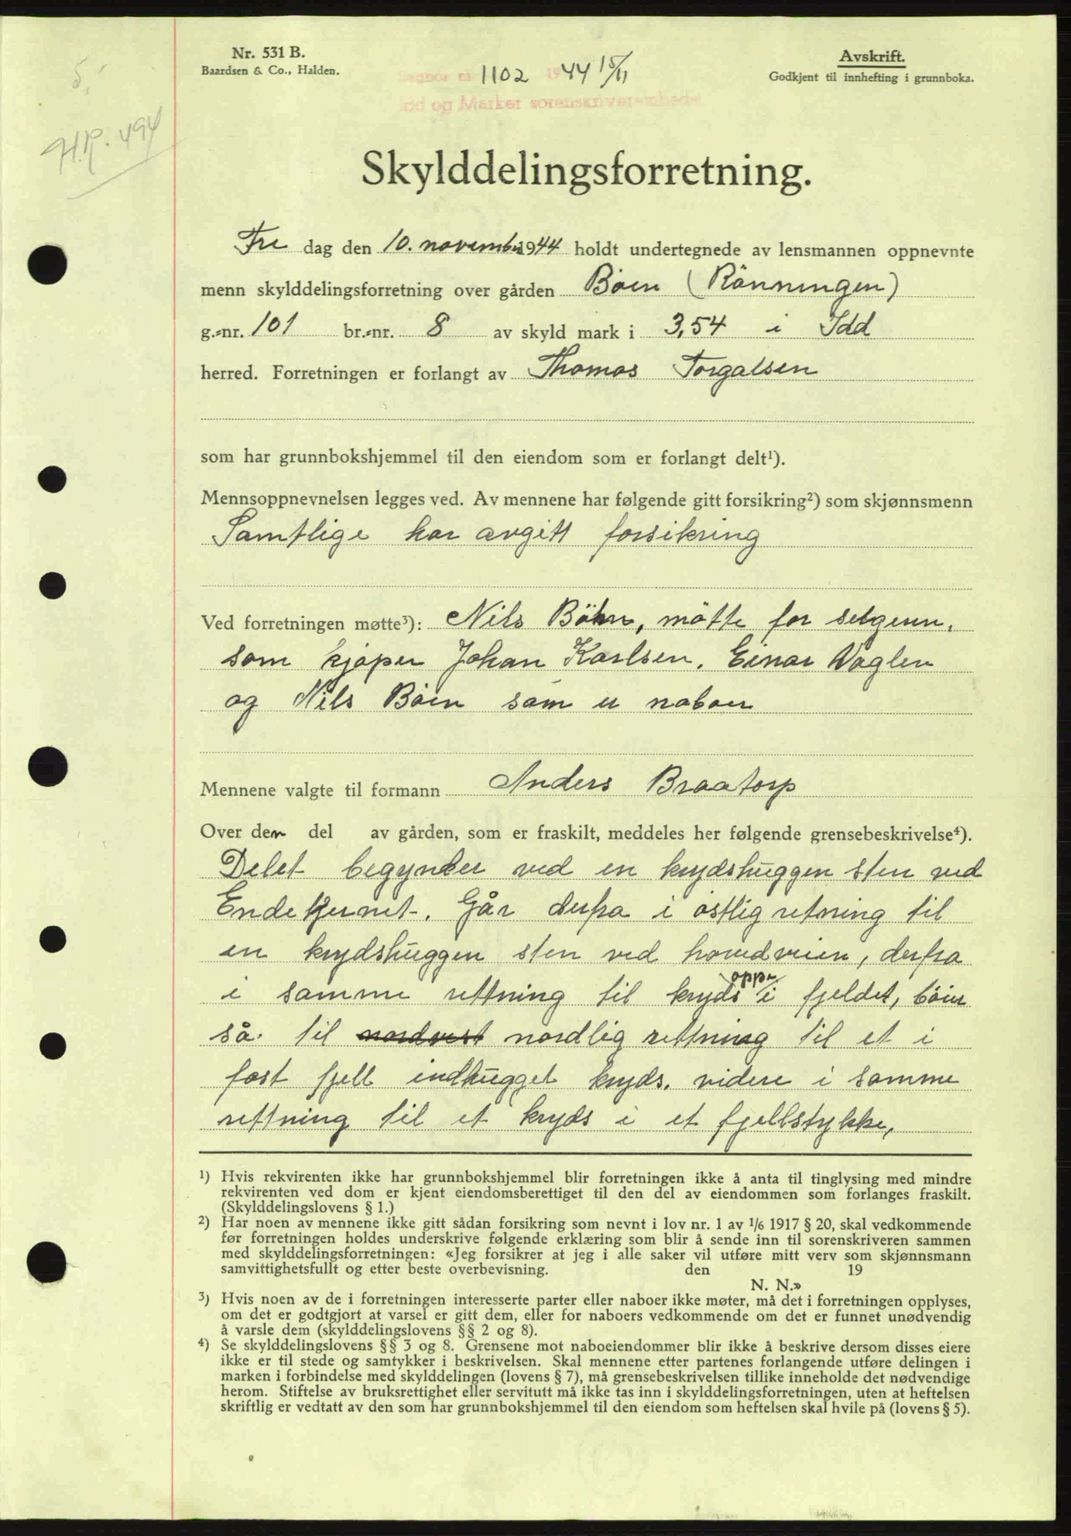 Nr. 531 B.
Baardsen & Co., Halden.
Avskrift.
Godkjent til innhefting i grunnboka.
5.
H.R. 494
Dagbok nr 1102 1944 15/11
Idd og Marker sorenskriverembede
Skylddelingsforretning.
Fre dag den 10. november 1944 holdt undertegnede av lensmannen oppnevnte
menn skylddelingsforretning over gården Böen (Rönningen)
g.-nr. 101 br.-nr. 8 av skyld mark i 3,54 i Idd
herred. Forretningen er forlangt av Thomas Torgalsen
som har grunnbokshjemmel til den eiendom som er forlangt delt¹).
Mennsoppnevnelsen legges ved. Av mennene har følgende gitt forsikring²) som skjønnsmenn
Samtlige har avgitt forsikring
Ved forretningen møtte³): Nils Böhn, mötte for selgeren,
som kjöper Johan Karlsen. Einar Vaglen
og Nils Böen som er naboer
Mennene valgte til formann Anders Braatorp
Over den del av gården, som er fraskilt, meddeles her følgende grensebeskrivelse⁴).
Delet begynder ved en krydshuggen sten ved
Endetjernet. Går derfra i östlig retning til
en krydshuggen sten ved hovedveien, derfra
i samme rettning til kryds oppe i fjeldet, böier
så til nordvest nordlig rettning til et i
fast fjell indhugget kryds. videre i samme
rettning til et kryds i et fjellstykke,
¹) Hvis rekvirenten ikke har grunnbokshjemmel blir forretningen ikke å anta til tinglysing med mindre
rekvirenten ved dom er kjent eiendomsberettiget til den del av eiendommen som forlanges fraskilt.
(Skylddelingslovens § 1.)
²) Har noen av mennene ikke gitt sådan forsikring som nevnt i lov nr. 1 av 1/6 1917 § 20, skal vedkommende
før forretningen holdes underskrive følgende erklæring som blir å sende inn til sorenskriveren sammen
med skylddelingsforretningen: «Jeg forsikrer at jeg i alle saker vil utføre mitt verv som skjønnsmann
samvittighetsfullt og etter beste overbevisning. den 19
N. N.»
³) Hvis noen av de i forretningen interesserte parter eller naboer ikke møter, må det i forretningen opplyses,
om det er godtgjort at varsel er gitt dem, eller for naboers vedkommende om det er funnet unødvendig
å varsle dem (skylddelingslovens §§ 2 og 8).
⁴) Se skylddelingslovens §§ 3 og 8. Grensene mot naboeiendommer blir ikke å beskrive dersom disses eiere
ikke er til stede og samtykker i beskrivelsen. Skal mennene etter partenes forlangende utføre delingen i
marken i forbindelse med skylddelingen (lovens § 7), må grensebeskrivelsen tillike inneholde det nødvendige
herom. Stiftelse av bruksrettighet eller servitutt må ikke tas inn i skylddelingsforretningen, uten at heftelsen
skriftlig er vedtatt av den som har grunnbokshjemmel til den eiendom som heftelsen skal hvile på (lovens § 5).